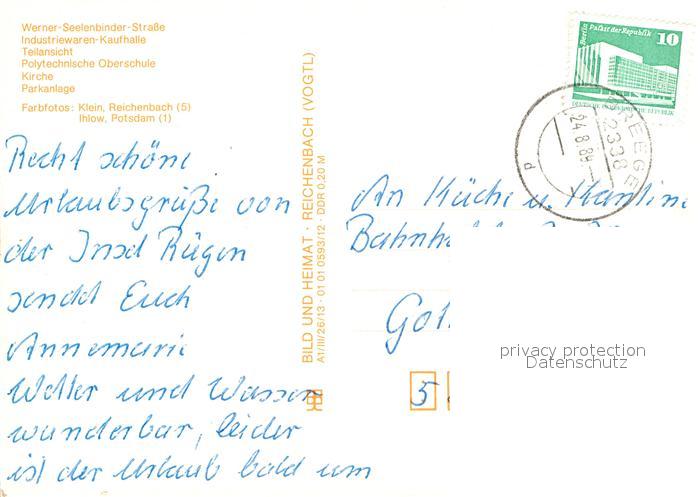 Werner-Seelenbinder-Straße
Industriewaren-Kaufhalle
Teilansicht
Polytechnische Oberschule
Kirche
Parkanlage
Farbfotos: Klein, Reichenbach (5)
Ihlow, Potsdam (1)
Recht schöne
Urlaubsgrüße von
der Insel Rügen
sendet Euch
Annemarie
Wetter und Wasser
wunderbar, leider
ist der Urlaub bald um
BILD UND HEIMAT · REICHENBACH (VOGTL)
A1/III/26/13 · 01 01 0593/12 · DDR 0,20 M
Berlin Palast der Republik
10
DEUTSCHE DEMOKRATISCHE REPUBLIK
BREEGE
2338
24.8.89
An Küche u. Kantine
5
privacy protection
Datenschutz